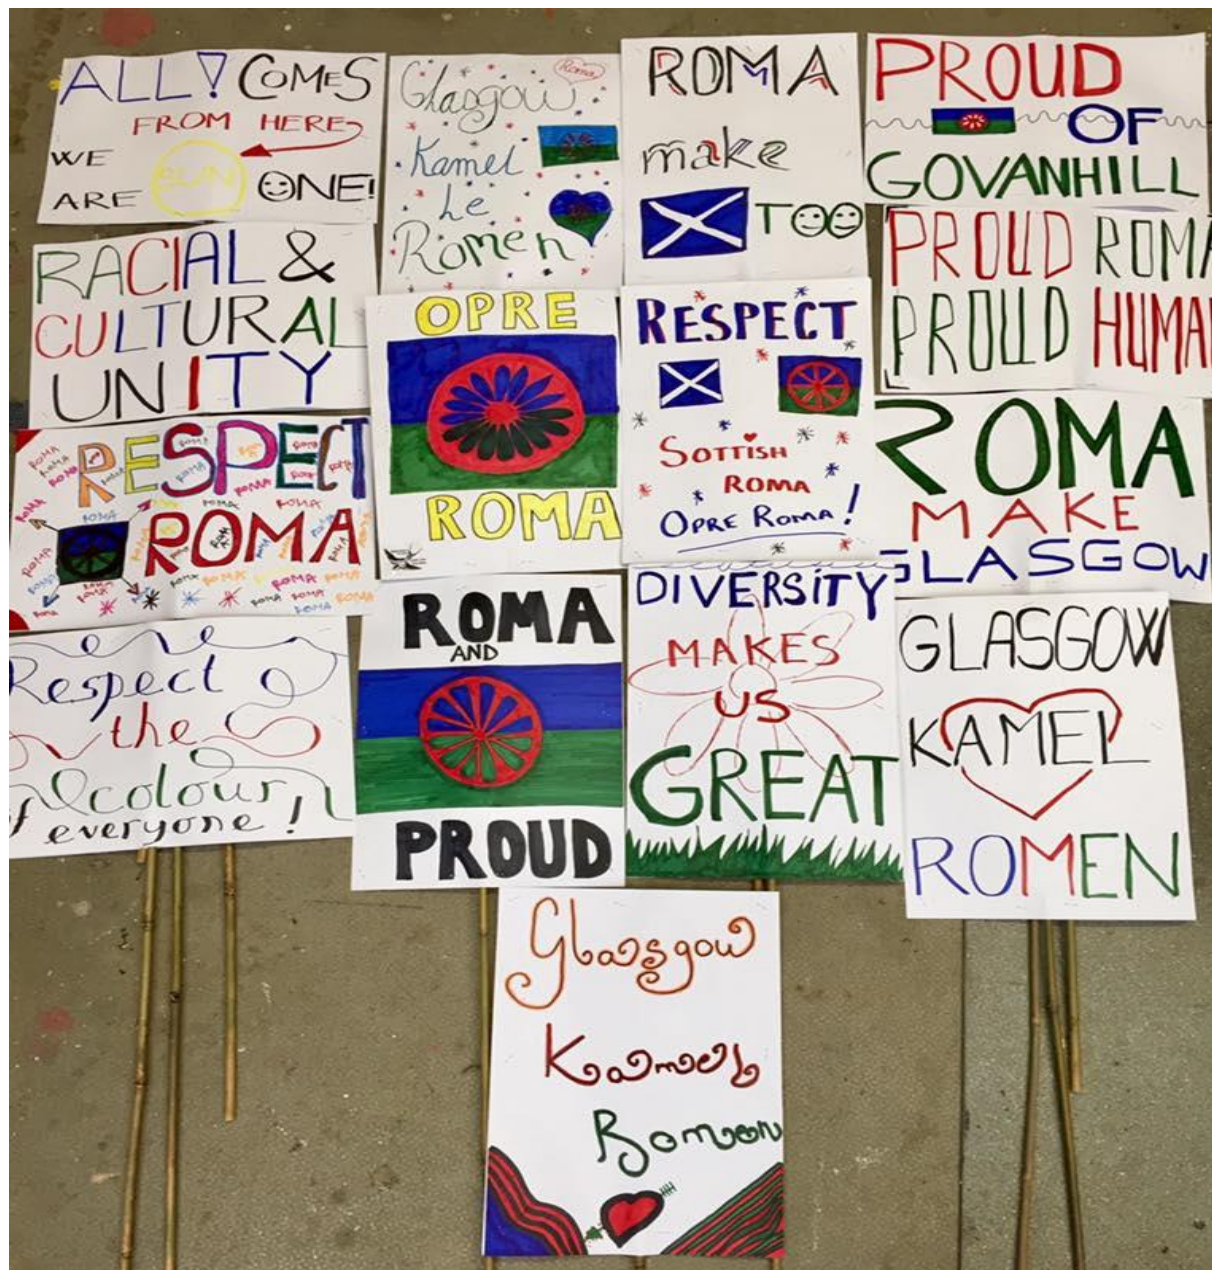 ALL! COMES
FROM HERE
WE SUN
ARE ONE!
Glasgow
Roma
Kamel
Le
Romen
ROMA
make
TOO
PROUD
OF
GOVANHILL
RACIAL &
CULTURAL
UNITY
OPRE
ROMA
RESPECT
SOTTISH
ROMA
OPRE ROMA!
PROUD ROMA
PROUD HUMA
RESPECT
ROMA
ROMA
MAKE
GLASGOW
Respect
the
colour
f everyone!
ROMA
AND
PROUD
DIVERSITY
MAKES
US
GREAT
GLASGOW
KAMEL
ROMEN
Glasgow
Kamel
Romen